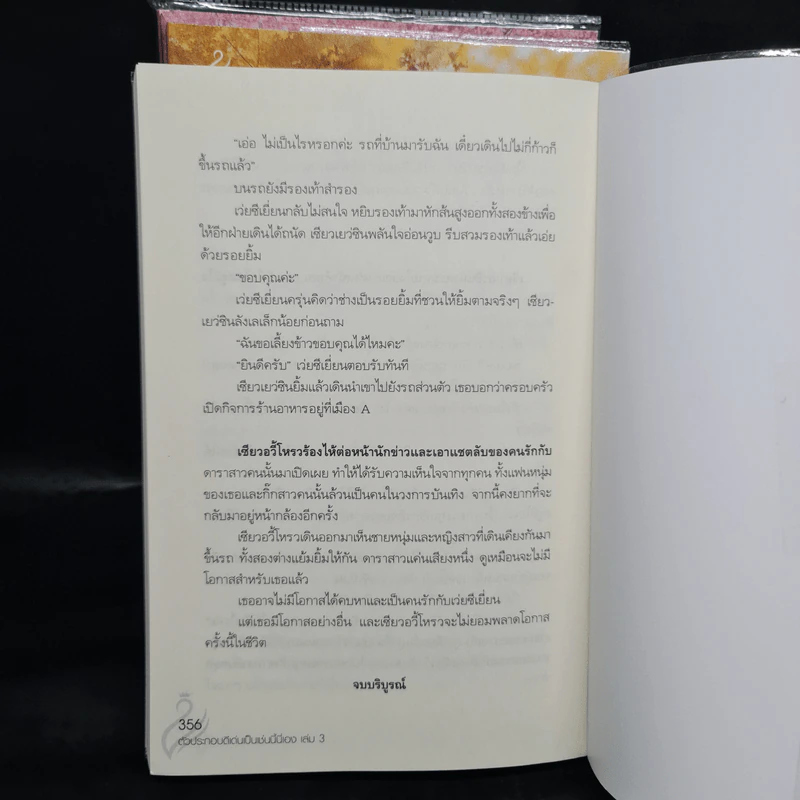 "เอ่อ ไม่เป็นไรหรอกค่ะ รถที่บ้านมารับฉัน เดี๋ยวเดินไปไม่กี่ก้าวก็
ขึ้นรถแล้ว"
บนรถยังมีรองเท้าสำรอง
เว่ยซีเยี่ยนกลับไม่สนใจ หยิบรองเท้ามาหักส้นสูงออกทั้งสองข้างเพื่อ
ให้อีกฝ่ายเดินได้ถนัด เซียวเยว่ซินพลันใจอ่อนวูบ รีบสวมรองเท้าแล้วเอ่ย
ด้วยรอยยิ้ม
"ขอบคุณค่ะ"
เว่ยซีเยี่ยนครุ่นคิดว่าช่างเป็นรอยยิ้มที่ชวนให้ยิ้มตามจริงๆ เซียว-
เยว่ซินลังเลเล็กน้อยก่อนถาม
"ฉันขอเลี้ยงข้าวขอบคุณได้ไหมคะ"
"ยินดีครับ" เว่ยซีเยี่ยนตอบรับทันที
เซียวเยว่ซินยิ้มแล้วเดินนำเขาไปยังรถส่วนตัว เธอบอกว่าครอบครัว
เปิดกิจการร้านอาหารอยู่ที่เมือง A
เซียวอวี้โหรวร้องไห้ต่อหน้านักข่าวและเอาแชตลับของคนรักกับ
ดาราสาวคนนั้นมาเปิดเผย ทำให้ได้รับความเห็นใจจากทุกคน ทั้งแฟนหนุ่ม
ของเธอและกิ๊กสาวคนนั้นล้วนเป็นคนในวงการบันเทิง จากนี้คงยากที่จะ
กลับมาอยู่หน้ากล้องอีกครั้ง
เซียวอวี้โหรวเดินออกมาเห็นชายหนุ่มและหญิงสาวที่เดินเคียงกันมา
ขึ้นรถ ทั้งสองต่างแย้มยิ้มให้กัน ดาราสาวแค่นเสียงหนึ่ง ดูเหมือนจะไม่มี
โอกาสสำหรับเธอแล้ว
เธออาจไม่มีโอกาสได้คบหาและเป็นคนรักกับเว่ยซีเยี่ยน
แต่เธอมีโอกาสอย่างอื่น และเซียวอวี้โหรวจะไม่ยอมพลาดโอกาส
ครั้งนี้ในชีวิต
จบบริบูรณ์
356
ตัวประกอบดีเด่นเป็นเช่นนี้นี่เอง เล่ม 3